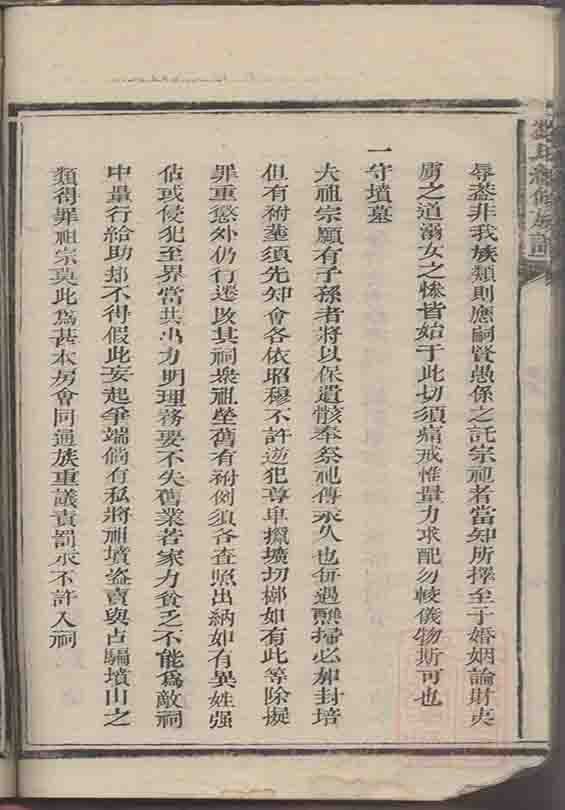 辱蓋非我族類則應嗣賢愚係之託宗祀者當知所擇至于婚姻論財夷
虜之道溺女之慘皆始于此切須痛戒惟量力求配勿較儀物斯可也
一守墳墓
夫祖宗願有子孫者將以保遺骸奉祭祀傳永久也每遇醮掃必加封培
但有祔塟須先知會各依昭穆不許逆犯尊卑攛壙切槨如有此等除擬
罪重懲外仍行遷改其祠衆祖塋舊有祔例須各查照出納如有異姓强
佔或侵犯至界當共出力明理務要不失舊業若家力貧乏不能爲敵祠
中量行給助却不得假此妄起爭端倘有私將祖墳盜賣與占騙墳山之
類得罪祖宗莫此爲甚本房會同通族重議責罰永不許入祠
氏續修族譜